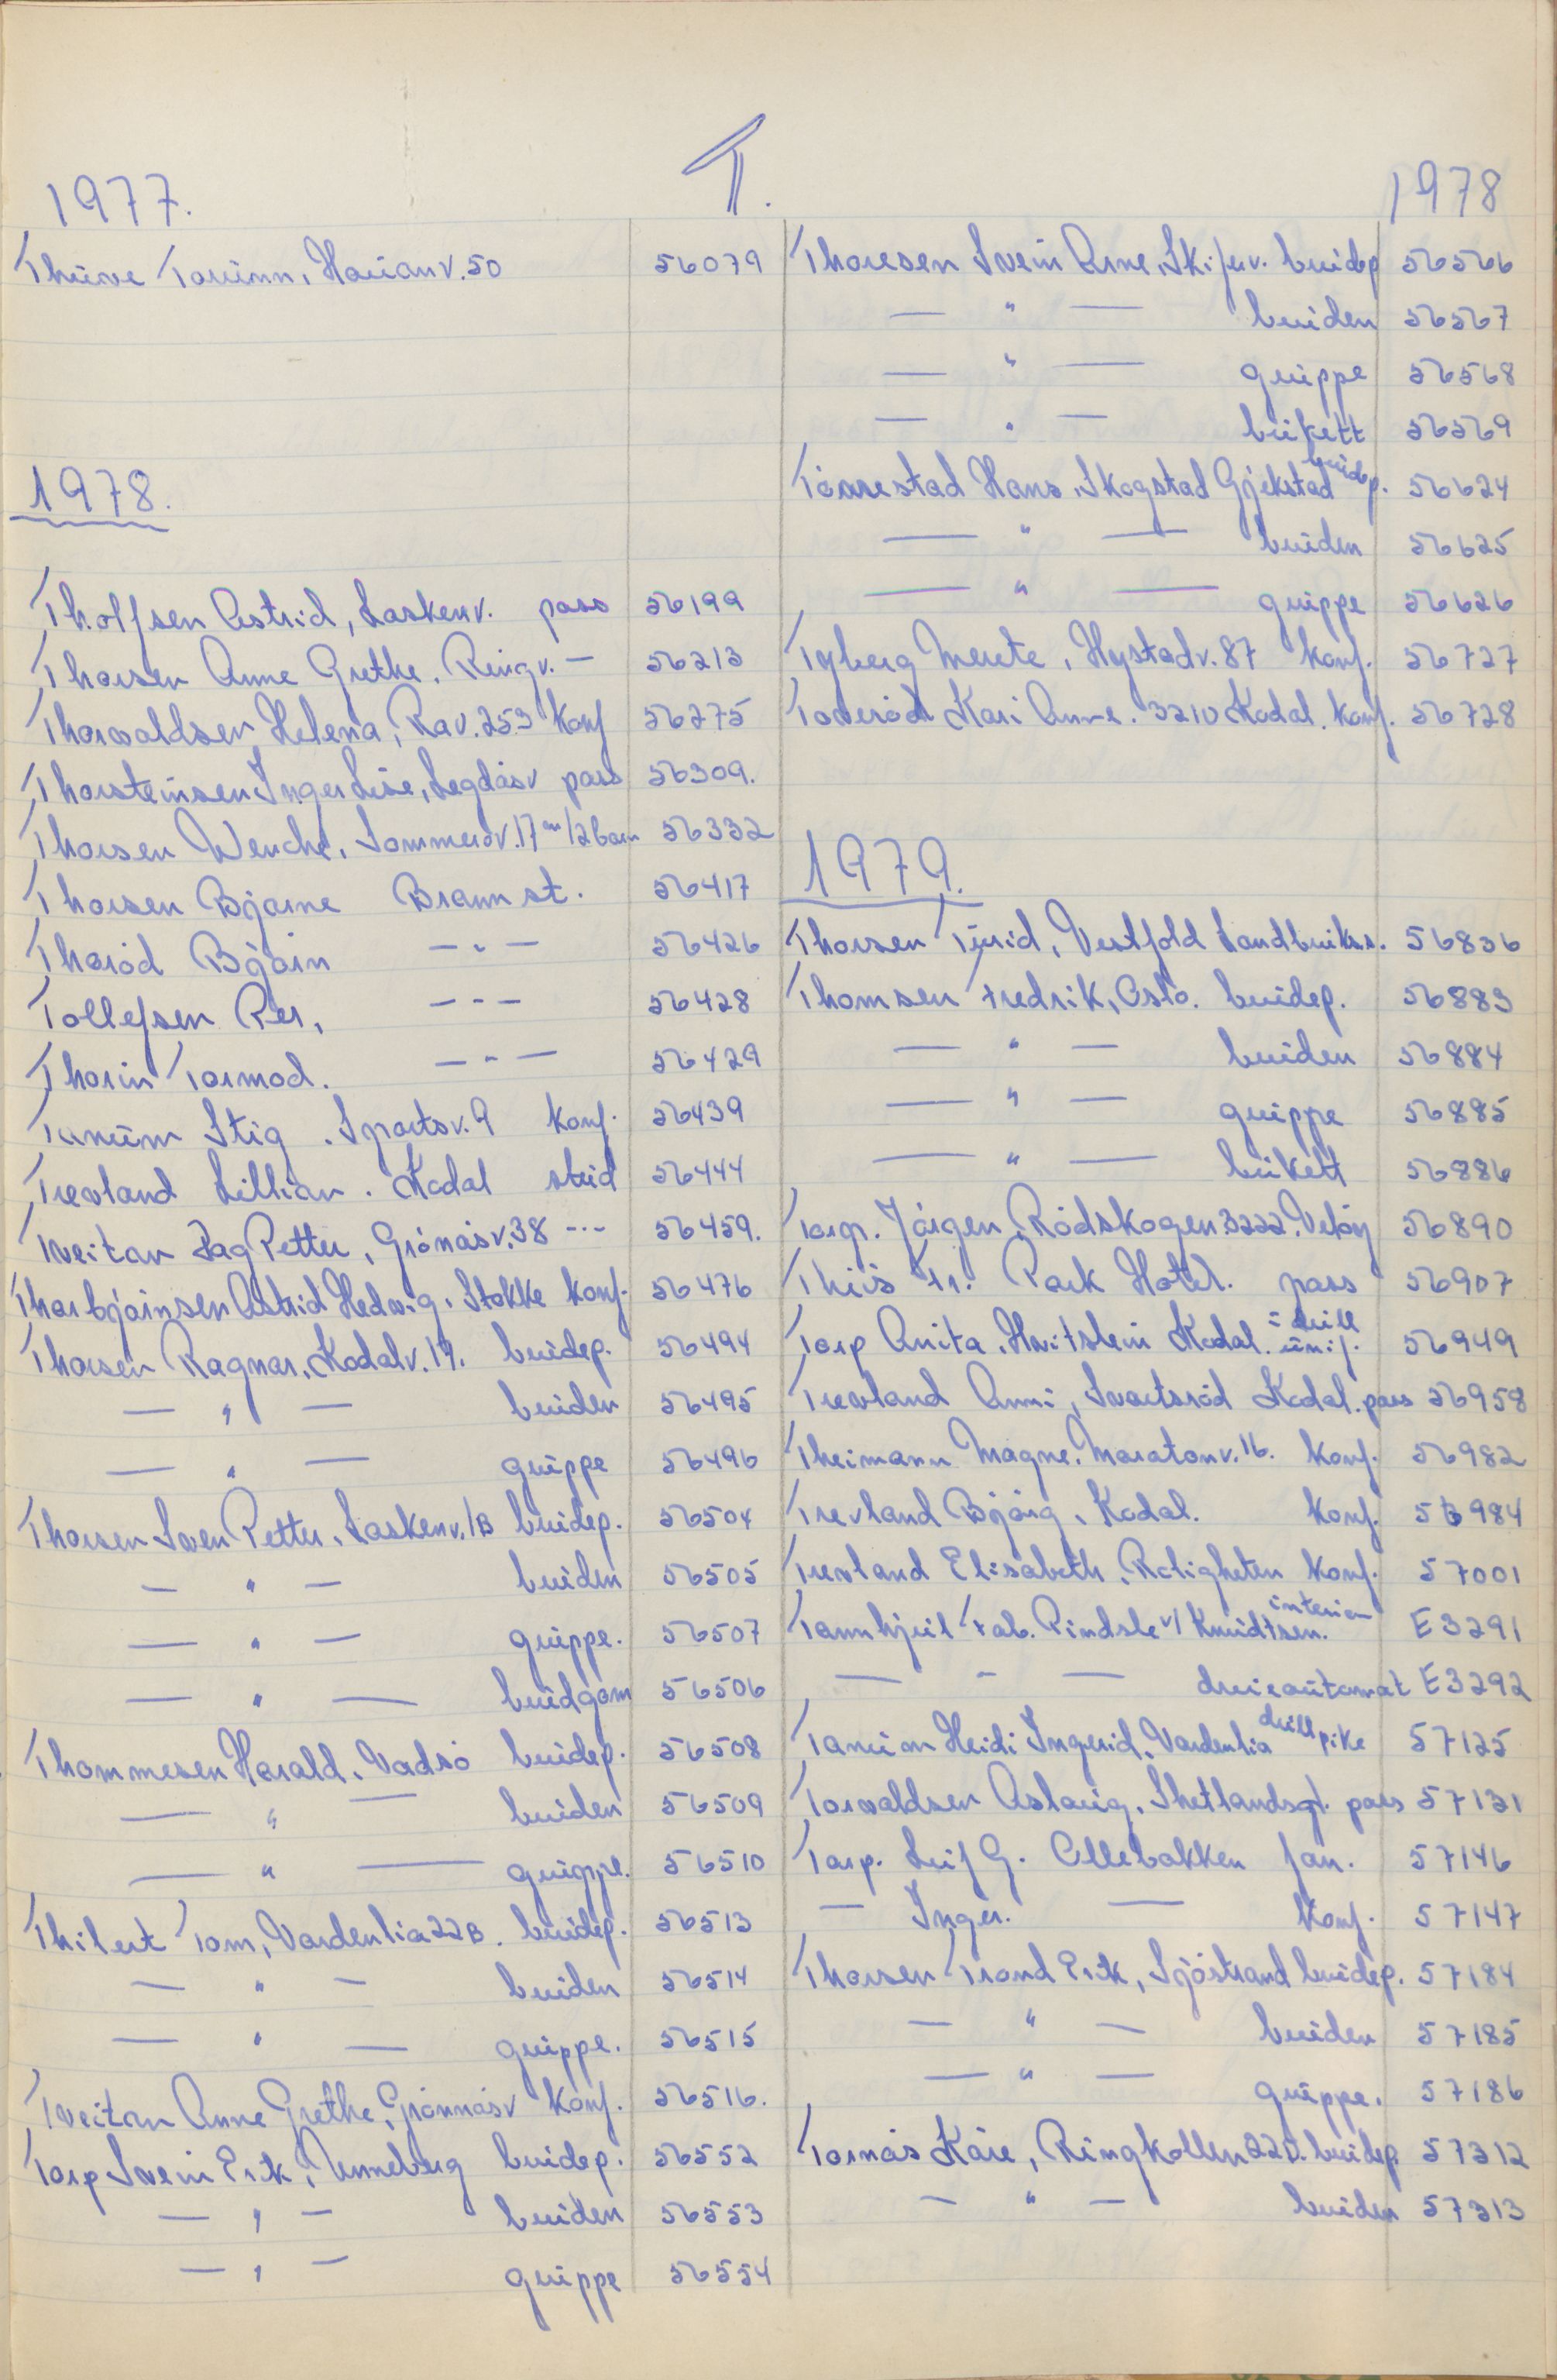 T.
1977.
Thüve Torünn, Haüanv. 50 56079
1978.
Tholfsen Astrid, Laskenv. pass 56199
Thorsen Anne Grethe. Ringv. — 56213
Thorvaldsen Helena, Rav. 253 Konf 56275
Thorsteinsen Inger Lise, Legdåsv pass 56309.
Thorsen Wenche, Sommerov. 17 m/2barn 56332
Thorsen Bjarne Brannst. 56417
Thoröd Bjørn — " — 56426
Tollefsen Per, — " — 56428
Thorin Tormod. — " — 56429
Tanüm Stig. Sportsv. 9 Konf. 56439
Trevland Lillian. Kodal stüd 56444
Tveitan Dag Petter, Grönåsv. 38 — " — 56459.
Thorbjørnsen Astrid Hedvig, Stokke Konf. 56476
Thorsen Ragnar, Kodalv. 19. brüdep. 56494
— " — brüden 56495
— " — grüppe 56496
Thorsen Sven Petter, Laskenv. 1B brüdep. 56504
— " — brüden 56505
— " — grüppe. 56507
— " — brüdgom 56506
Thommesen Harald, Vadsö brüdep. 56508
— " — brüden 56509
— " — grüppe. 56510
Thilert Tom, Vardenlia 22B. brüdep. 56513
— " — brüden 56514
— " — grüppe. 56515
Tveitan Anne Grethe, Grønnåsv Konf. 56516.
Torp Svein Erik, Unneberg brüdep. 56552
— " — brüden 56553
— " — grüppe 56554
1978
Thoresen Svein Arne, Skiferv. brüdep 56566
— " — brüden 56567
— " — grüppe 56568
— " — bükett 56569
Tönnestad Hans, Skogstad Gjekstad brüdep. 56624
— " — brüden 56625
— " — grüppe 56626
Tyberg Merete, Hystadv. 87 Konf. 56727
Toveröd Kari Anne. 3210 Kodal. Konf. 56728
1979.
Thorsen Türid, Vestfold Landbrükss. 56836
Thomsen Fredrik, Oslo. brüdep. 56883
— " — brüden 56884
— " — grüppe 56885
— " — bükett 56886
Torp. Jörgen, Rödskogen. 3222. Velöy 56890
Thiis Fr. Park Hotel. pass 56907
Torp Anita, Hvitstein Kodal. i drill ünif. 56949
Trevland Anni, Svartsröd Kodal. pass 56958
Theimann Magne, Maratonv. 16. Konf. 56982
Trevland Bjørg, Kodal. Konf. 56984
Trevland Elisabeth, Roligheten Konf. 57001
Tannhjül Fab. Pindsle v/ Knüdtsen. interiør E3291
— " — dreieaütomat E3292
Tanüm Heidi Ingerid, Vardenlia drillpike 57125
Torvaldsen Aslaüg, Shetlandsgt. pass 57131
Torp. Leif G. Ollebakken fam. 57146
— Inger. — Konf. 57147
Thorsen Trond Erik, Sjöstrand brüdep. 57184
— " — brüden 57185
— " — grüppe. 57186
Tornås Kåre, Ringkollen 22D. brüdep. 57312
— " — brüden 57313